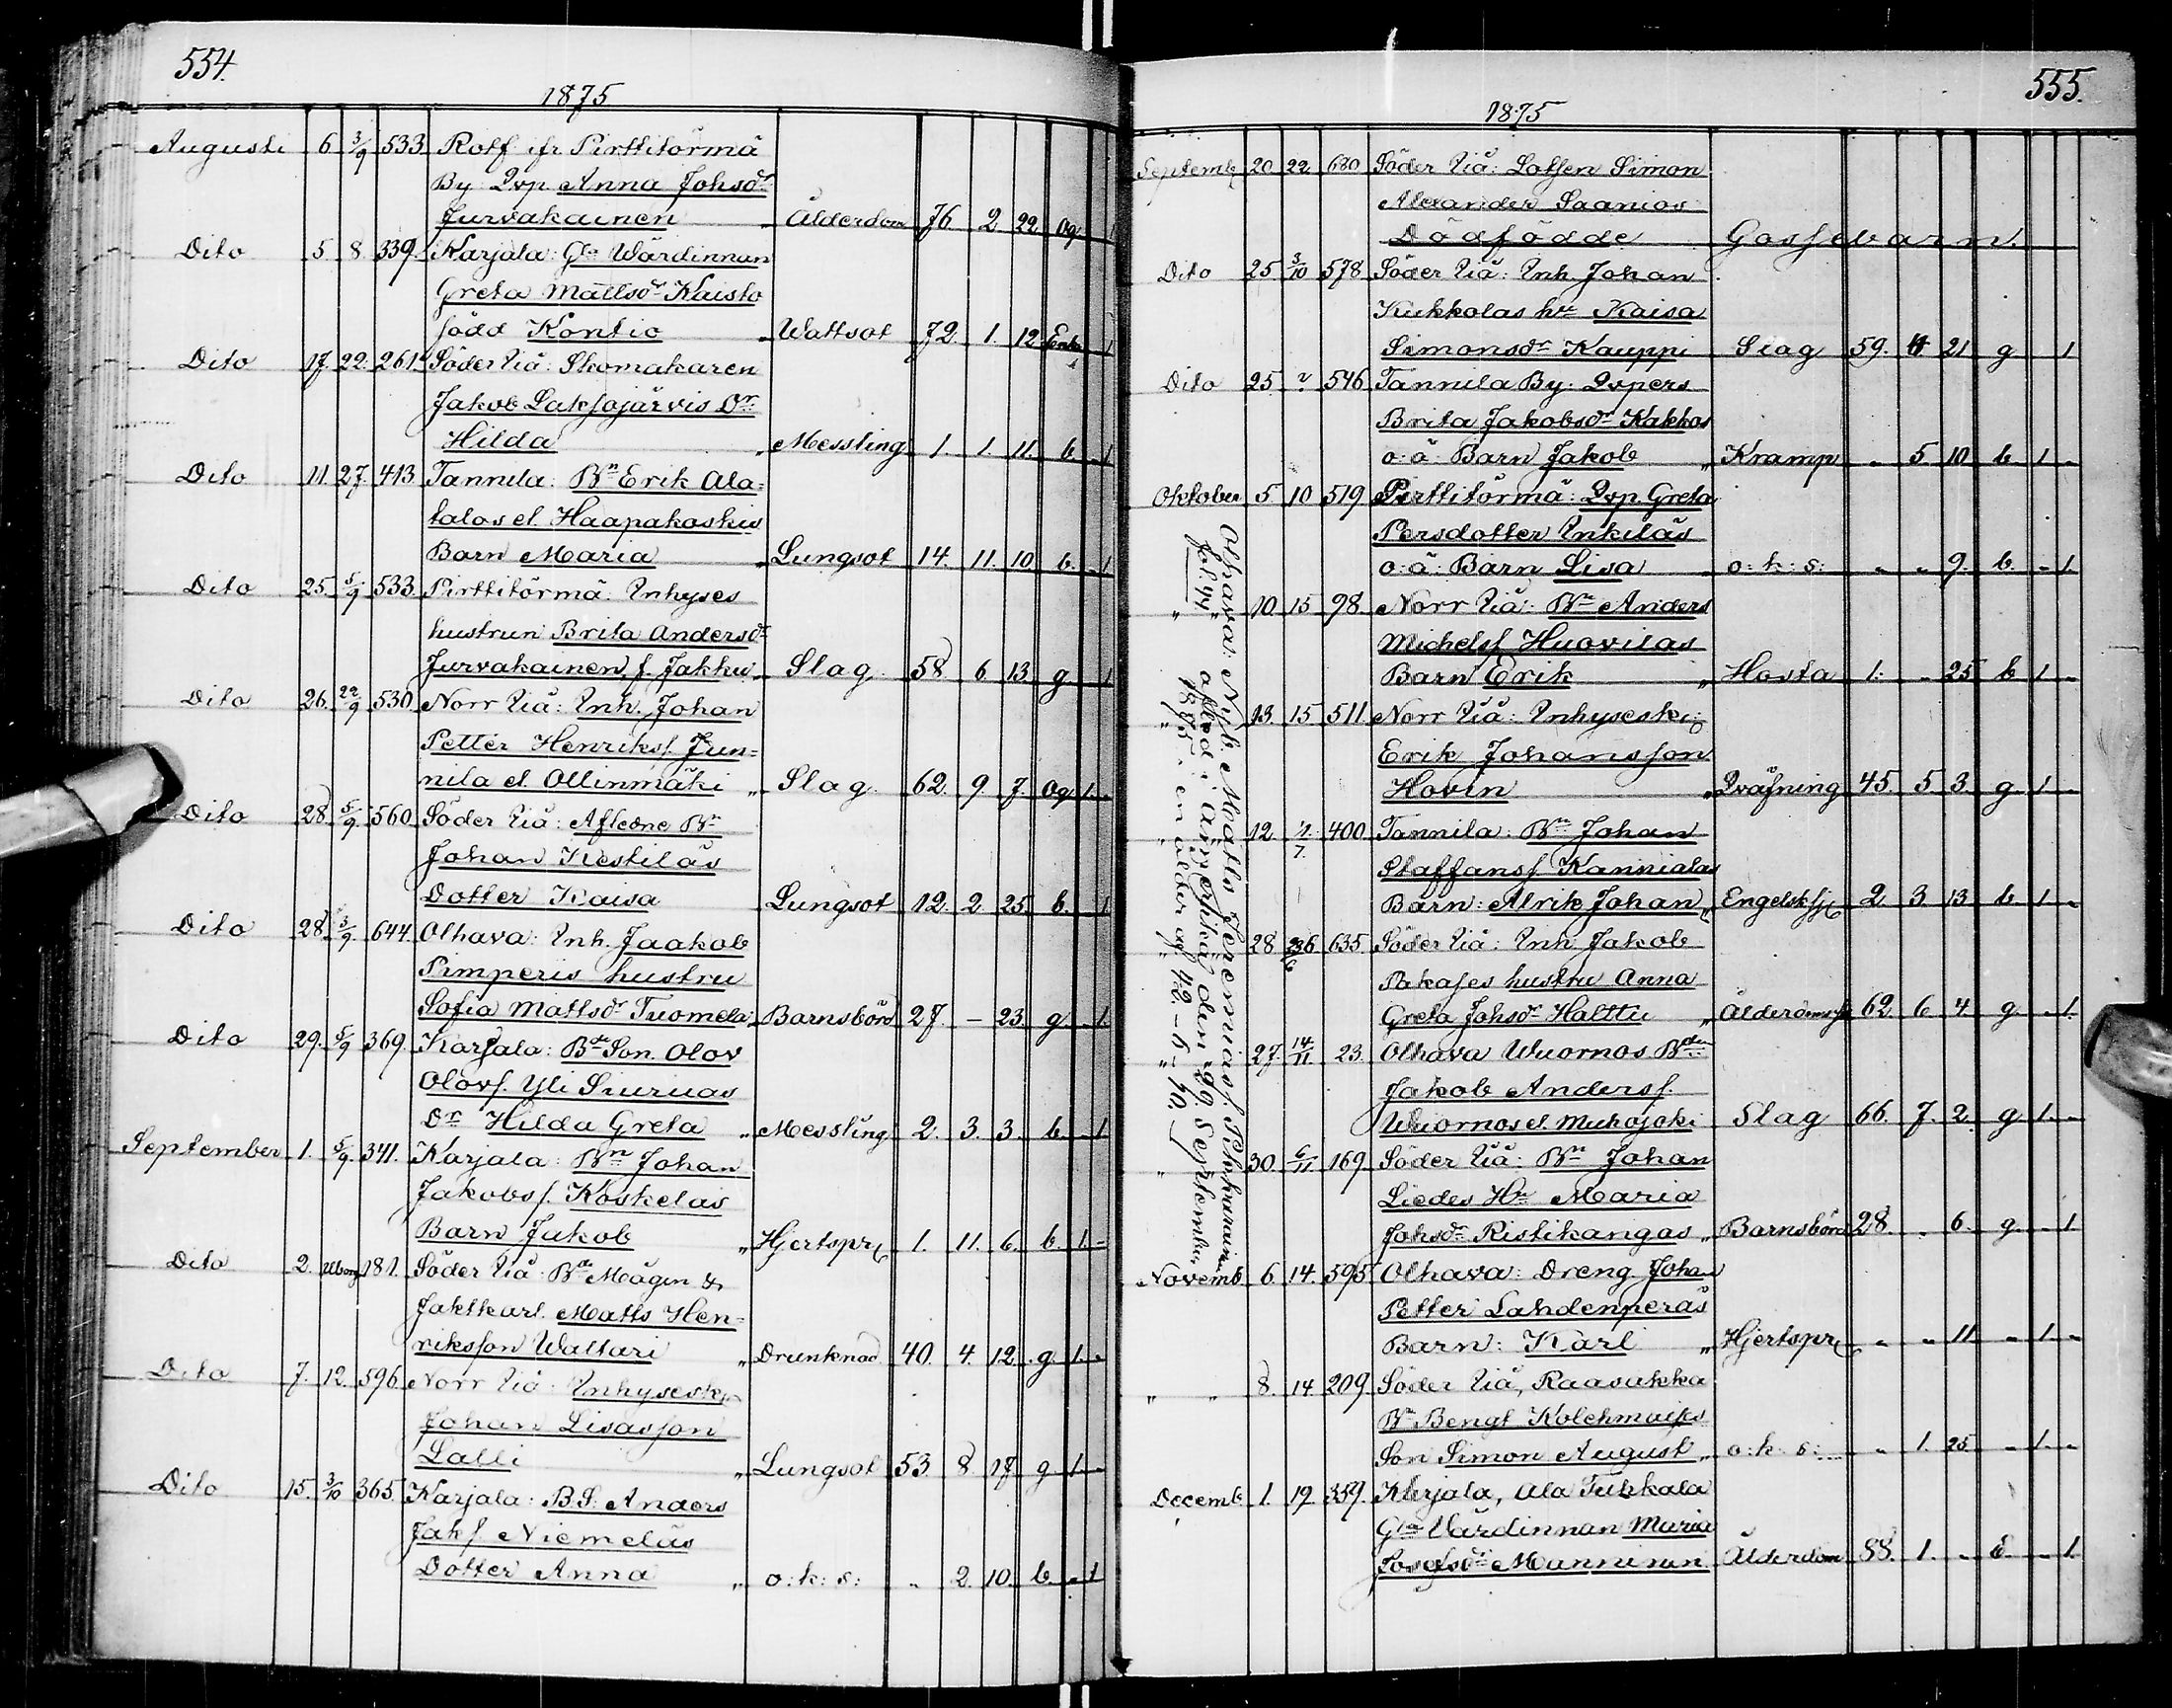 554.
1875
Augusti 6 3/9 533 Rotf ifr Pirttitörmä
By: Qvp Anna Johsdr
Jurvakainen „ Ålderdom 76. 2 22. Og 1
Dito 5 8. 339. Karjala: Gla Wärdinnan
Greta Mattsdr Kaisto
född Kontio „ Wattsot 72. 1. 12 Enka 1
Dito 17. 22. 261. Söder Iiå: Skomakaren
Jakob Laksojärvis Dr
Hilda „ Messling 1. 1. 11. b. „ 1
Dito 11. 27. 413. Tannila: Bn Erik Ala-
talos el. Haapakoskis
Barn Maria „ Lungsot 14. 11. 10. b. „ 1
Dito 25. 5/9 533. Pirttitörmä: Inhyses
hustrun Brita Andersdr
Jurvakainen, f. Jakku „ Slag 58 6 13 g 1
Dito 26. 22/9 530. Norr Iiå: Inh. Johan
Petter Henriks. Jun-
nila el. Ollinmäki „ Slag 62. 9. 7. Og 1. „
Dito 28. 5/9. 560. Söder Iiå: Afledne Bn
Johan Kestiläs
Dotter Kaisa Lungsot 12. 2. 25. b. 1
Dito 28. 3/9. 644. Olhava: Inh. Jaakob
Pimperis hustru
Sofia Mattsdr Tuomela „ Barnsbörd 27. – 23. g „ 1.
Dito 29. 5/9 369. Karjala: Bde Son. Olov
Olovs. Yli Siuruas
Dr Hilda Greta „ Messling 2. 3. 3. b. „ 1.
September 1. 5/9. 341. Karjala: Bn Johan
Jakobs. Koskelas
Barn Jakob „ Hjertspr 1. 11. 6. b. 1. „
Dito 2. 181. Söder Iiå: Bde Mågen &
Jaktkarl. Matts Hen-
riksson Waltari „ Drunknad 40. 4. 12. g 1. „
Dito 7. 12. 596. Norr Iiå: Inhysesk
Johan Lisasson
Lalli „ Lungsot 53 8 17 g 1. „
Dito 15. 3/10 365. Karjala: B.S: Anders
Jaks. Niemeläs
Dotter Anna „ o: k: s: „ 2. 10. b. „ 1
555.
1875
Septemb 20 22 680 Söder Iiå: Lotsen Simon
Alexander Saanios
Dödfödde Gossebarn.
Dito 25. 3/10 578 Söder Iiå: Inh. Johan
Kukkolas hu Kaisa
Simonsdr Kauppi Slag 59. 21 g 1
Dito 25. ? 546 Tannila By: Qvpers
Brita Jakobsdr Kakkos
o: ä: Barn Jakob „ Kramp „ 5 10 b 1 „
Oktober 5 10 519 Pirttitörmä: Qvp. Greta
Persdotter Inkiläs
o: ä: Barn Lisa o: k: s: „ „ 9. b. „ 1.
„ 10 15 98. Norr Iiå: Bn Anders
Michels. Huovilas
Barn Erik „ Hosta 1: „ 25 b 1 „
„ 13. 15 511 Norr Iiå: Inhyseska:
Erik Johansson
Hovin „ Qväfning 45. 5 3. g 1. „
„ 12. 400 Tannila: Bn Johan
Staffans. Kannialas
Barn: Alrik Johan „ Engelsksj 2 3. 13 b. 1 „
„ 28 635. Söder Iiå: Inh Jakob
Pakases hustru Anna
Greta Johsdr Halttu „ Ålderdomss 62. 6 4 g „ 1.
„ 27. 14/11 23. Olhava Wuornos Bden
Jakob Anders.
Wuornos el. Muhojoki Slag 66. 7. 2. g 1. „
„ 30. 6/11 169 Söder Iiå: Bn Johan
Liedes Hu Maria
Johsdr Ristikangas „ Barnsbörd 28. „ 6. g. „ 1
Olhavas Nyb. Matts Jeremias.
fol: 44. afled i den 29. September
1875 i en ålder af 42 – 6 – 10.
Novemb. 6. 14. 595 Olhava: Dreng. Johan
Petter Lahdenperäs
Barn: Karl „ Hjertspr „ „ 11 „ 1. „
„ „ 8. 14. 209. Söder Iiå, Raasakka
Bn Bengt Kolehmais
Son Simon August „ o: k: s: „ 1. 25 „ 1. „
Decemb 1. 19. 359. Karjala, Ala Tuhkala
Gla Värdinnan Maria
Josefsdr Manninen Ålderdom 88. 1. „ E. „ 1.